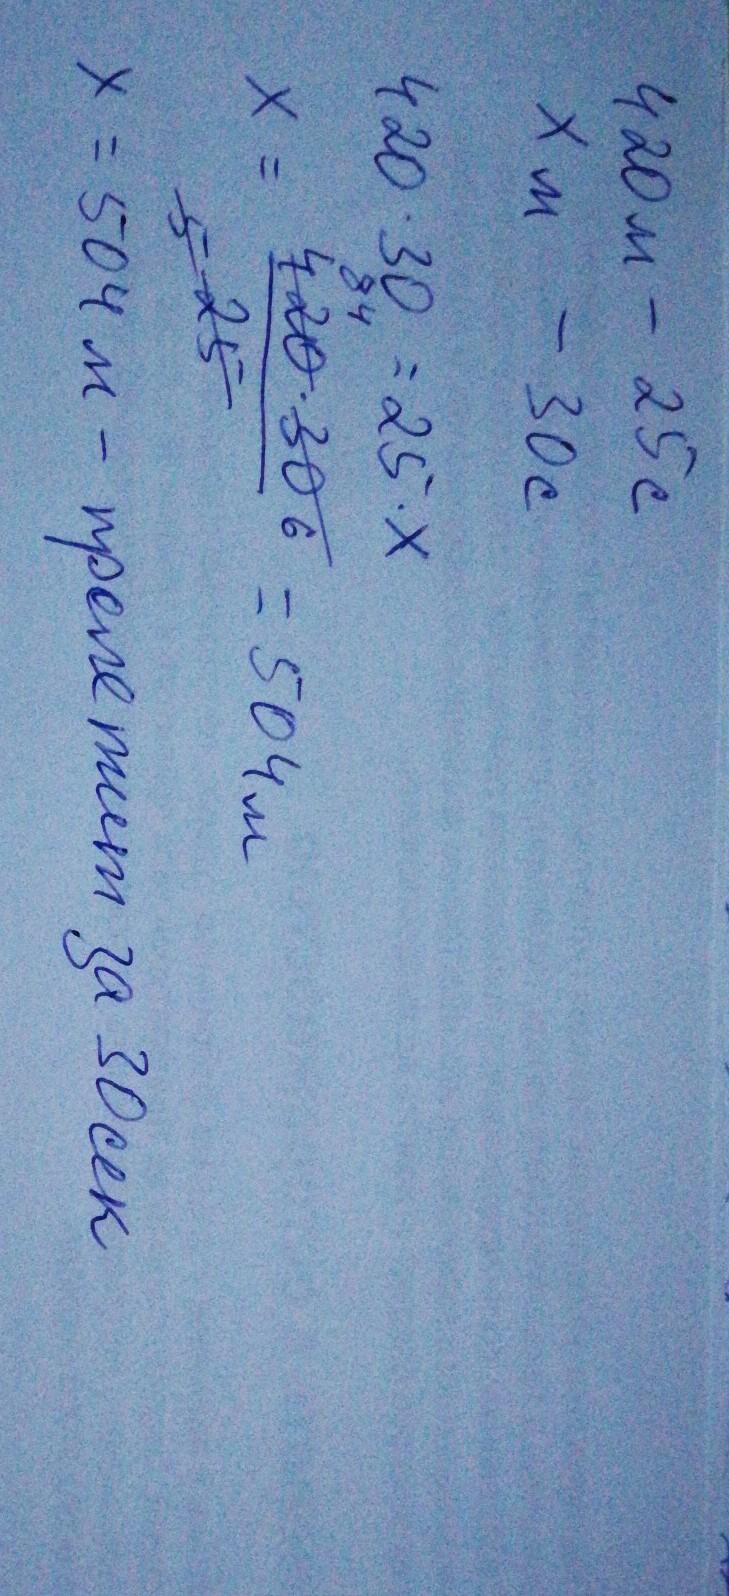 420 м - 25 с
х м - 30 с
420 · 30 = 25 · х
84
х = 420 · 30 6 = 504 м
5 25
х = 504 м - пролетит за 30 сек